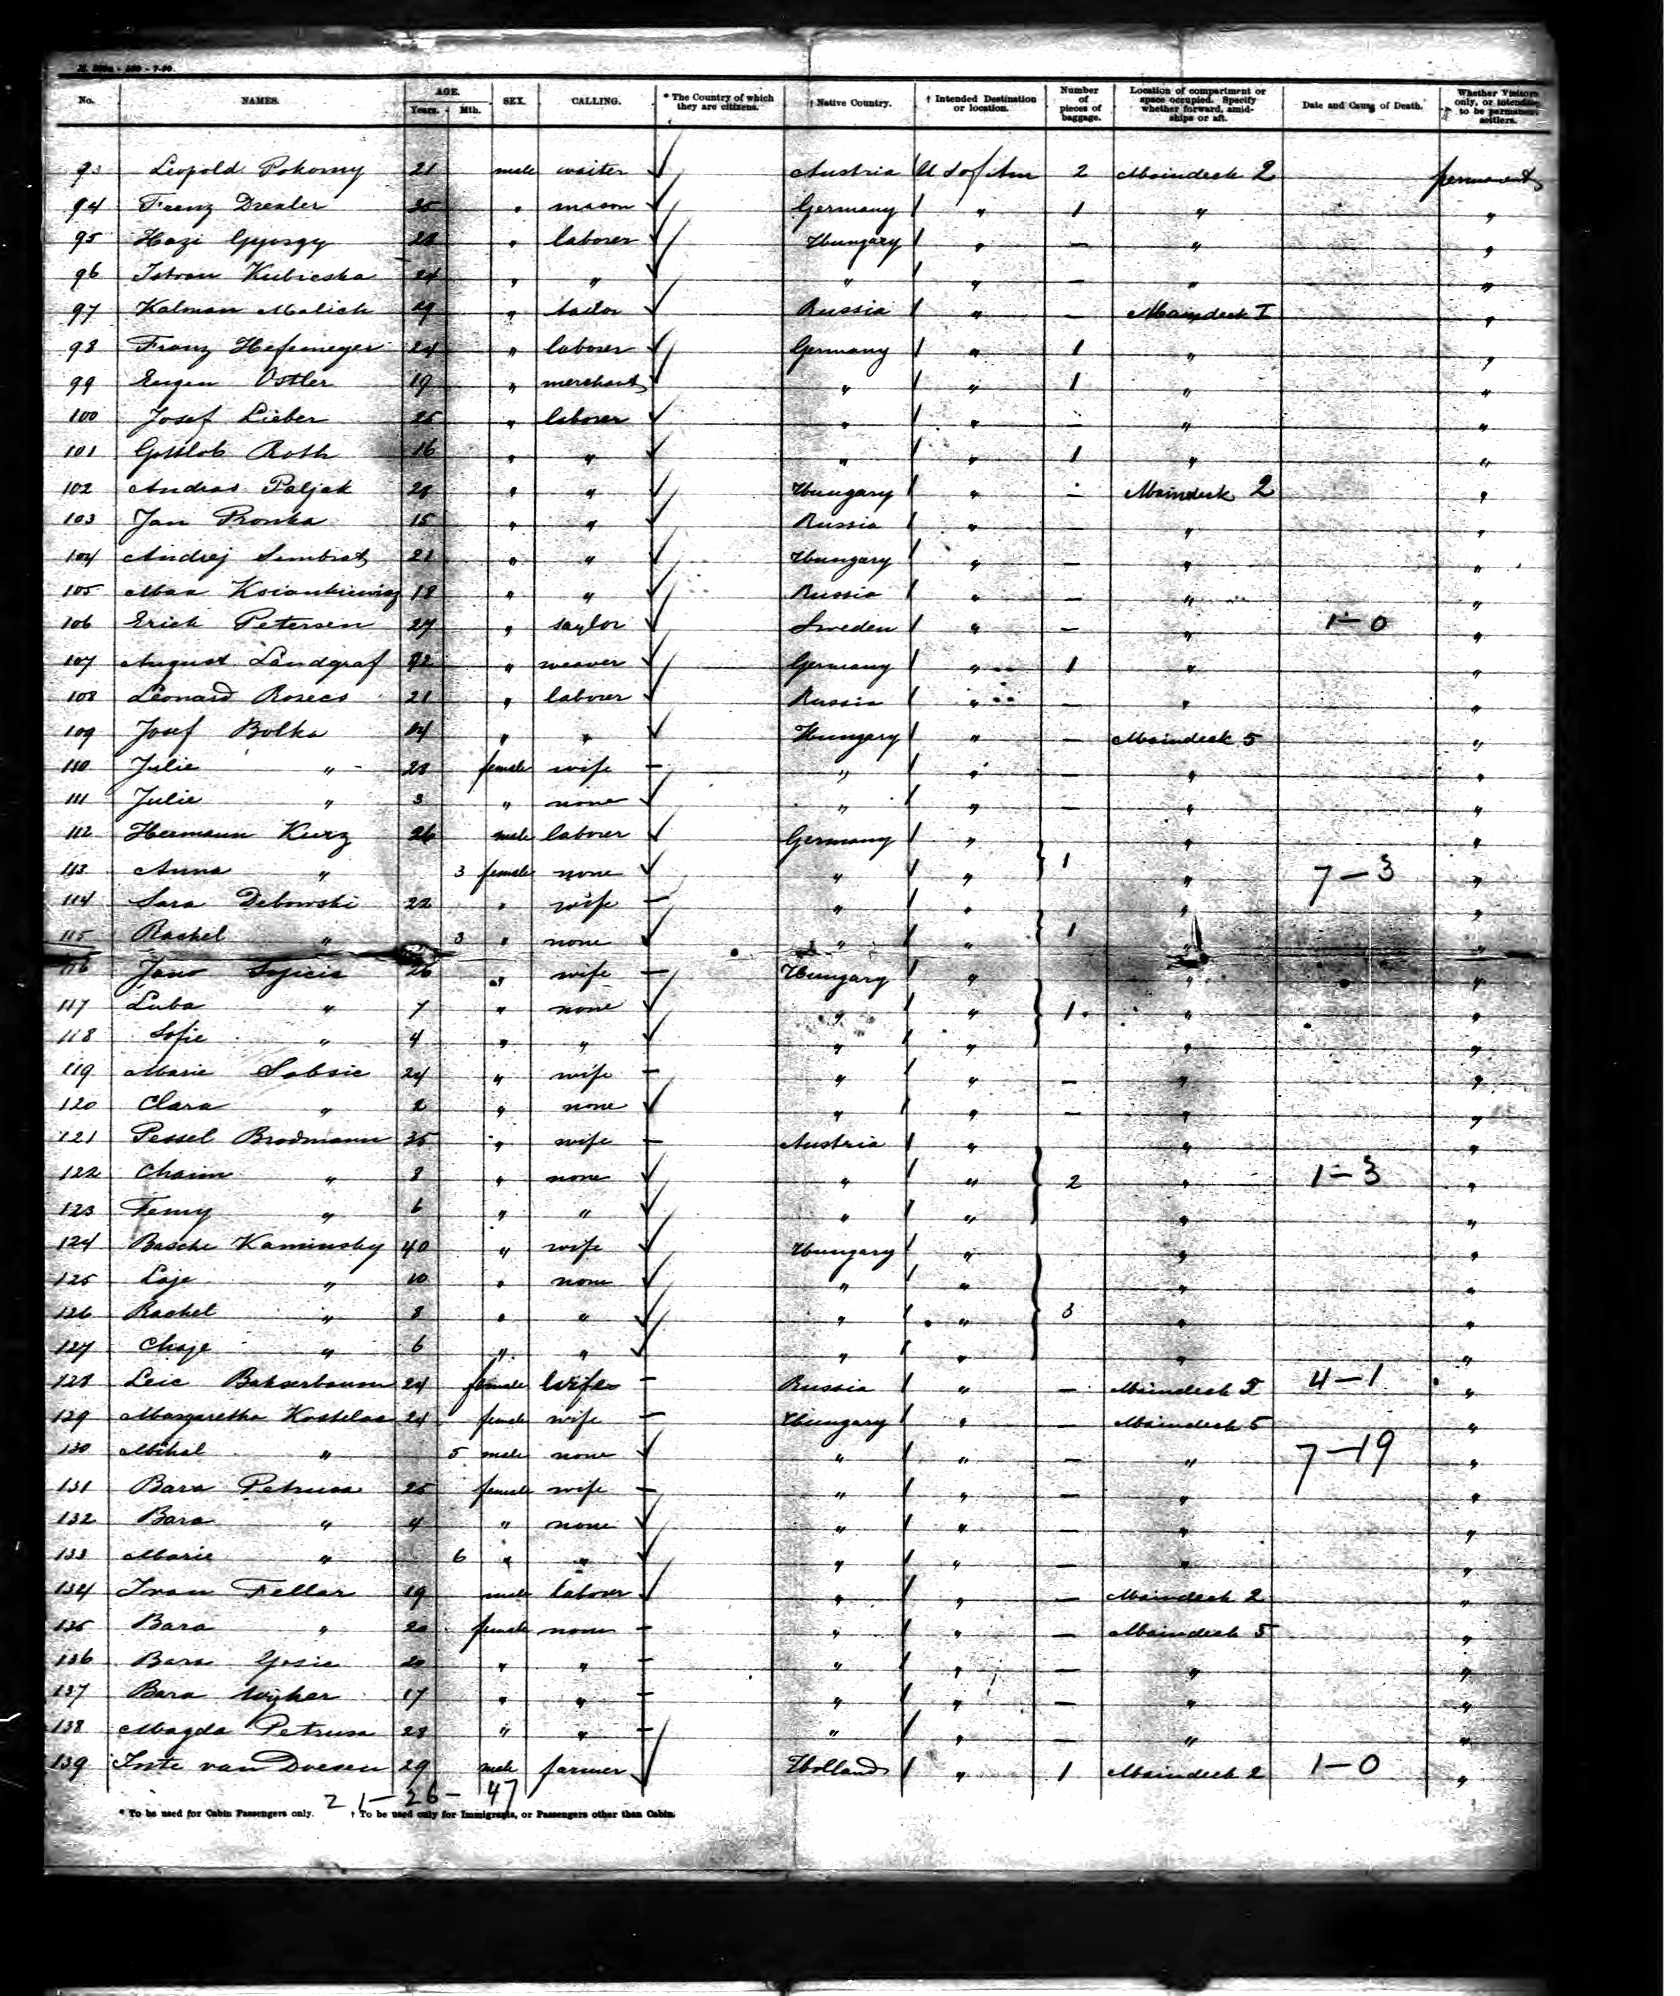 No. NAMES. AGE. Years. Mth. SEX. CALLING. * The Country of which they are citizens. † Native Country. † Intended Destination or location. Number of pieces of baggage. Location of compartment or space occupied. Specify whether forward, amidships or aft. Date and Cause of Death. Whether Visitors only, or intending to be permanent settlers.
93 Leopold Pokorny 21 male waiter ✓ Austria U S of Am 2 Maindeck 2 permanent
94 Franz Drexler 25 " mason ✓ Germany " 1 " "
95 Hazi Gyorgy 28 " laborer ✓ Hungary " — " "
96 Istvan Kubicska 24 " " ✓ " " — " "
97 Kalman Malich 29 " tailor ✓ Russia " — Maindeck I "
98 Franz Hefemeyer 24 " laborer ✓ Germany " 1 " "
99 Eugen Ostler 19 " merchant ✓ " " 1 " "
100 Josef Lieber 25 " laborer ✓ " " — " "
101 Gottlob Roth 16 " " ✓ " " 1 " "
102 Andras Paljak 28 " " ✓ Hungary " — Maindeck 2 "
103 Jan Pronka 15 " " ✓ Russia " — " "
104 Andrej Sembrat 21 " " ✓ Hungary " — " "
105 Max 18 " " ✓ Russia " — " "
106 Erich Petersen 27 " saylor ✓ Sweden " — " 1–0 "
107 August Landgraf " weaver ✓ Germany " 1 " "
108 Leonard 21 " laborer ✓ Russia " — " "
109 Josef Bolka " " ✓ Hungary " — Maindeck 5 "
110 Julie " 28 female wife — " " — " "
111 Julie " 3 " none ✓ " " — " "
112 Hermann Kurz 26 male laborer ✓ Germany " " "
113 Anna " 3 female none ✓ " " 1 " 7–3 "
114 Sara Debowski 22 " wife — " " " "
115 Rachel " 3 " none ✓ " " 1 " "
116 26 " wife — Hungary " " "
117 Luba " 7 " none ✓ " " 1 " "
118 Sofie " 4 " " ✓ " " " "
119 Marie Sabsic 24 " wife — " " — " "
120 Clara " 2 " none ✓ " " — " "
121 Pessel Brodmann 35 " wife — Austria " " "
122 Chaim " 8 " none ✓ " " 2 " 1–3 "
123 Fenny " 6 " " ✓ " " " "
124 Basche Kaminsky 40 " wife ✓ Hungary " " "
125 Laje " 10 " none ✓ " " " "
126 Rachel " 8 " " ✓ " " 3 " "
127 Chaje " 6 " " ✓ " " " "
128 Leie 24 female wife — Russia " — Maindeck 5 4–1 "
129 Margaretha Kostelac 24 female wife — Hungary " — Maindeck 5 "
130 Mihal " 5 male none ✓ " " — " 7–19 "
131 Bara Petrusa 25 female wife — " " — " "
132 Bara " 4 " none ✓ " " — " "
133 Marie " 6 " " ✓ " " — " "
134 Ivan Fellar 19 male laborer ✓ " " — Maindeck 2 "
135 Bara " 20 female none — " " — Maindeck 5 "
136 Bara 20 " " — " " — " "
137 Bara 17 " " — " " — " "
138 Magda Petrusa 28 " " — " " — " "
139 van Doesen 29 male farmer ✓ Holland " 1 Maindeck 2 1–0 "
21–26–47
* To be used for Cabin Passengers only. † To be used only for Immigrants, or Passengers other than Cabin.